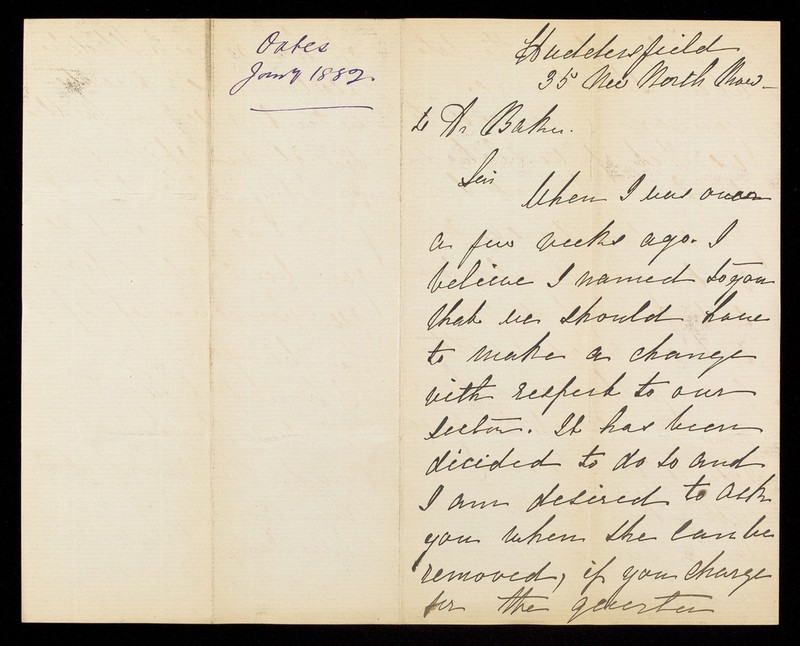 Oates
Jany 1882.
Huddersfield
35 New North Road
to Dr Baker.
Sir
When I was over
a few weeks ago. I
believe I named to you
that we should have
to make a change
with respect to our
sister. It has been
decided to do so and
I am desired to ask
you when she can be
removed, if you charge
for the quarter